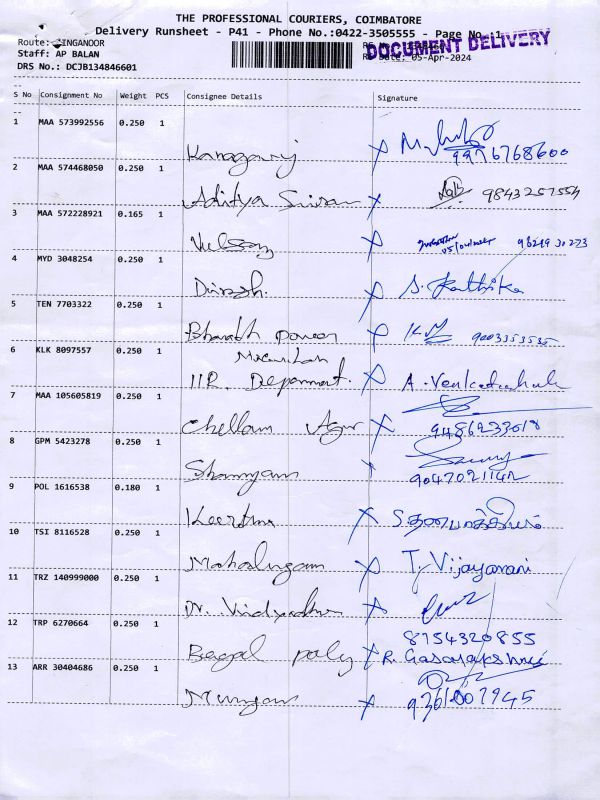 THE PROFESSIONAL COURIERS, COIMBATORE
Delivery Runsheet - P41 - Phone No.:0422-3505555 - Page No. 1
Route: INGANOOR
Staff: AP BALAN
DRS No.: DCJB134846601
Date: 05-Apr-2024
DOCUMENT DELIVERY
S No Consignment No Weight PCS Consignee Details Signature
1 MAA 573992556 0.250 1
9976768600
2 MAA 574468050 0.250 1
Aditya Sivan 9843257554
3 MAA 572228921 0.165 1
Nelson
4 MYD 3048254 0.250 1
Dinesh. S. Karthika
5 TEN 7703322 0.250 1
Bharath
6 KLK 8097557 0.250 1
HR. Department. A. Venkatachalam
7 MAA 105605819 0.250 1
Chellam 9486233018
8 GPM 5423278 0.250 1
9047021142
9 POL 1616538 0.180 1
Keerthna
10 TSI 8116528 0.250 1
Mahalingam T. Vijayarani
11 TRZ 140999000 0.250 1
Dr. Vidyadhar
12 TRP 6270664 0.250 1
8754320855
Bengal poly R.
13 ARR 30404686 0.250 1
Murugan 9361007945